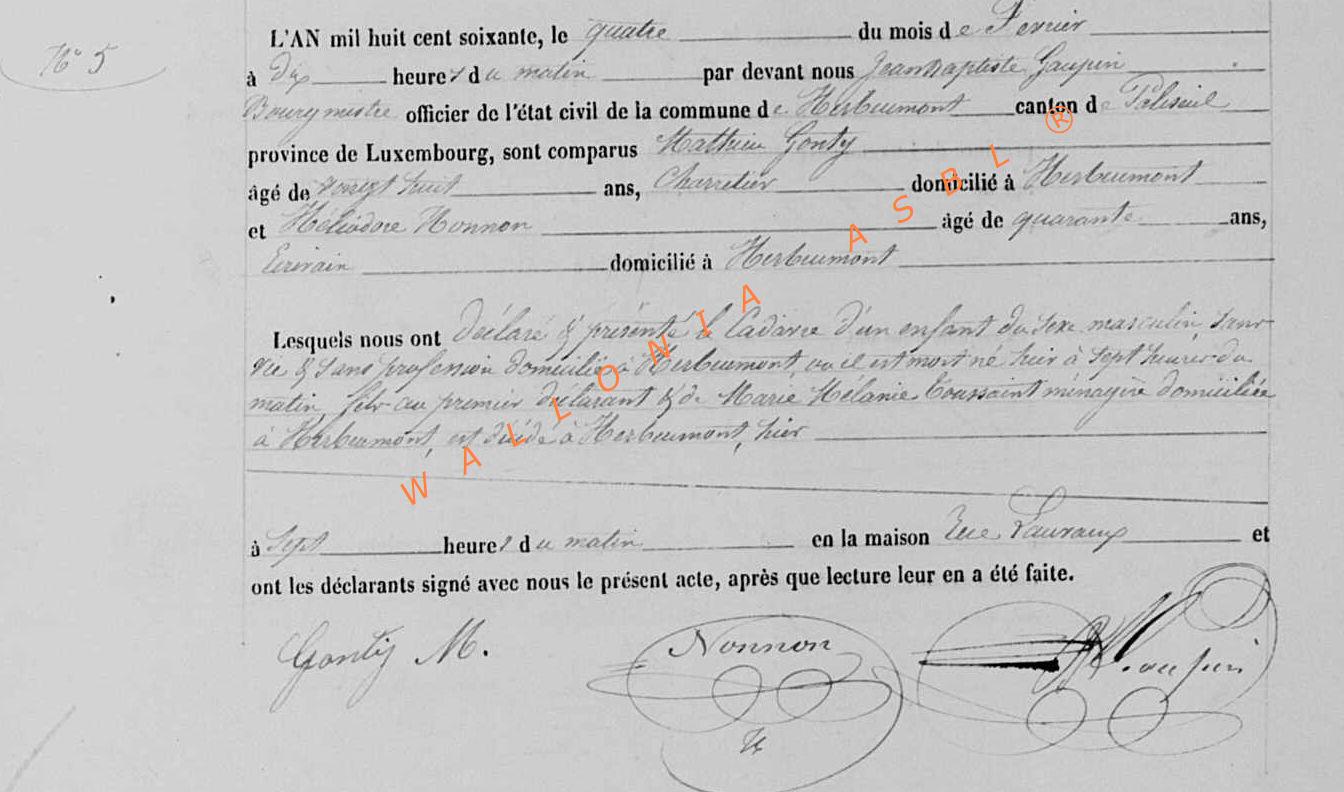 N° 5
L'AN mil huit cent soixante, le quatre du mois de Fevrier
à Dix heures du matin par devant nous Jean Baptiste Gaupin
Bourgmestre officier de l'état civil de la commune de Herbeumont canton de Paliseul
province de Luxembourg, sont comparus Mathieu Gonty
âgé de vingt huit ans, Charretier domicilié à Herbeumont
et Héliodore Nonnon âgé de quarante ans,
Ecrivain domicilié à Herbeumont
Lesquels nous ont déclaré & présenté le Cadavre d'un enfant du sexe masculin, sans
vie & sans profession domicilié à Herbeumont, ou il est mort né hier à sept heures du
matin, fils au premier déclarant & de Marie Mélanie Toussaint ménagère domiciliée
à Herbeumont, est décédé à Herbeumont, hier
à Sept heures du matin en la maison Rue et
ont les déclarants signé avec nous le présent acte, après que lecture leur en a été faite.
Gonty M. Nonnon Gaupin
H
WALLONIA ASBL ®